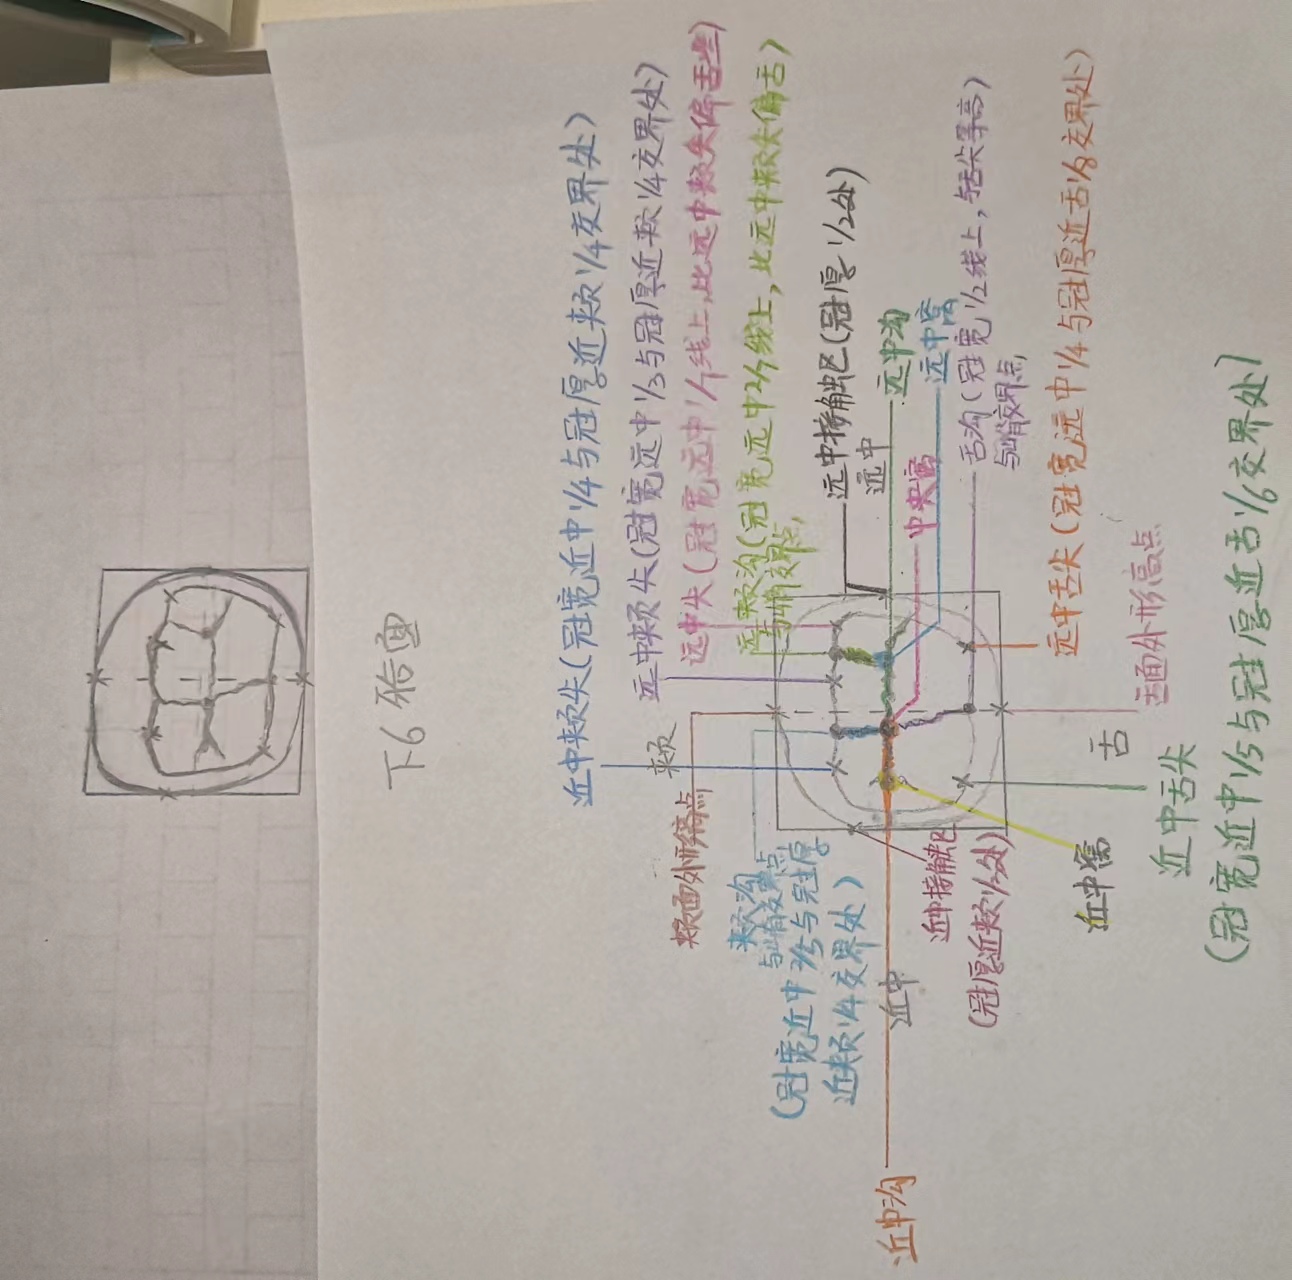 下6𬌗面
近中颊尖(冠宽近中1/4与冠厚近颊1/4交界处)
远中颊尖(冠宽远中1/3与冠厚近颊1/4交界处)
远中尖(冠宽远中1/7线上,比远中颊尖偏舌些)
远颊沟(冠宽远中2/7线上,比远中颊尖偏舌)
与嵴交界点
远中接触区(冠厚1/2处)
远中
远中沟
远中窝
中央窝
舌沟(冠宽1/2线上,与舌尖等高)
与嵴交界点
远中舌尖(冠宽远中1/4与冠厚近舌1/6交界处)
舌面外形高点
舌
近中舌尖
(冠宽近中1/5与冠厚近舌1/6交界处)
近中窝
近中接触区
(冠厚近颊1/3处)
近中
近中沟
颊沟
与嵴交界点
(冠宽近中2/5与冠厚
近颊1/4交界处)
颊面外形高点
颊